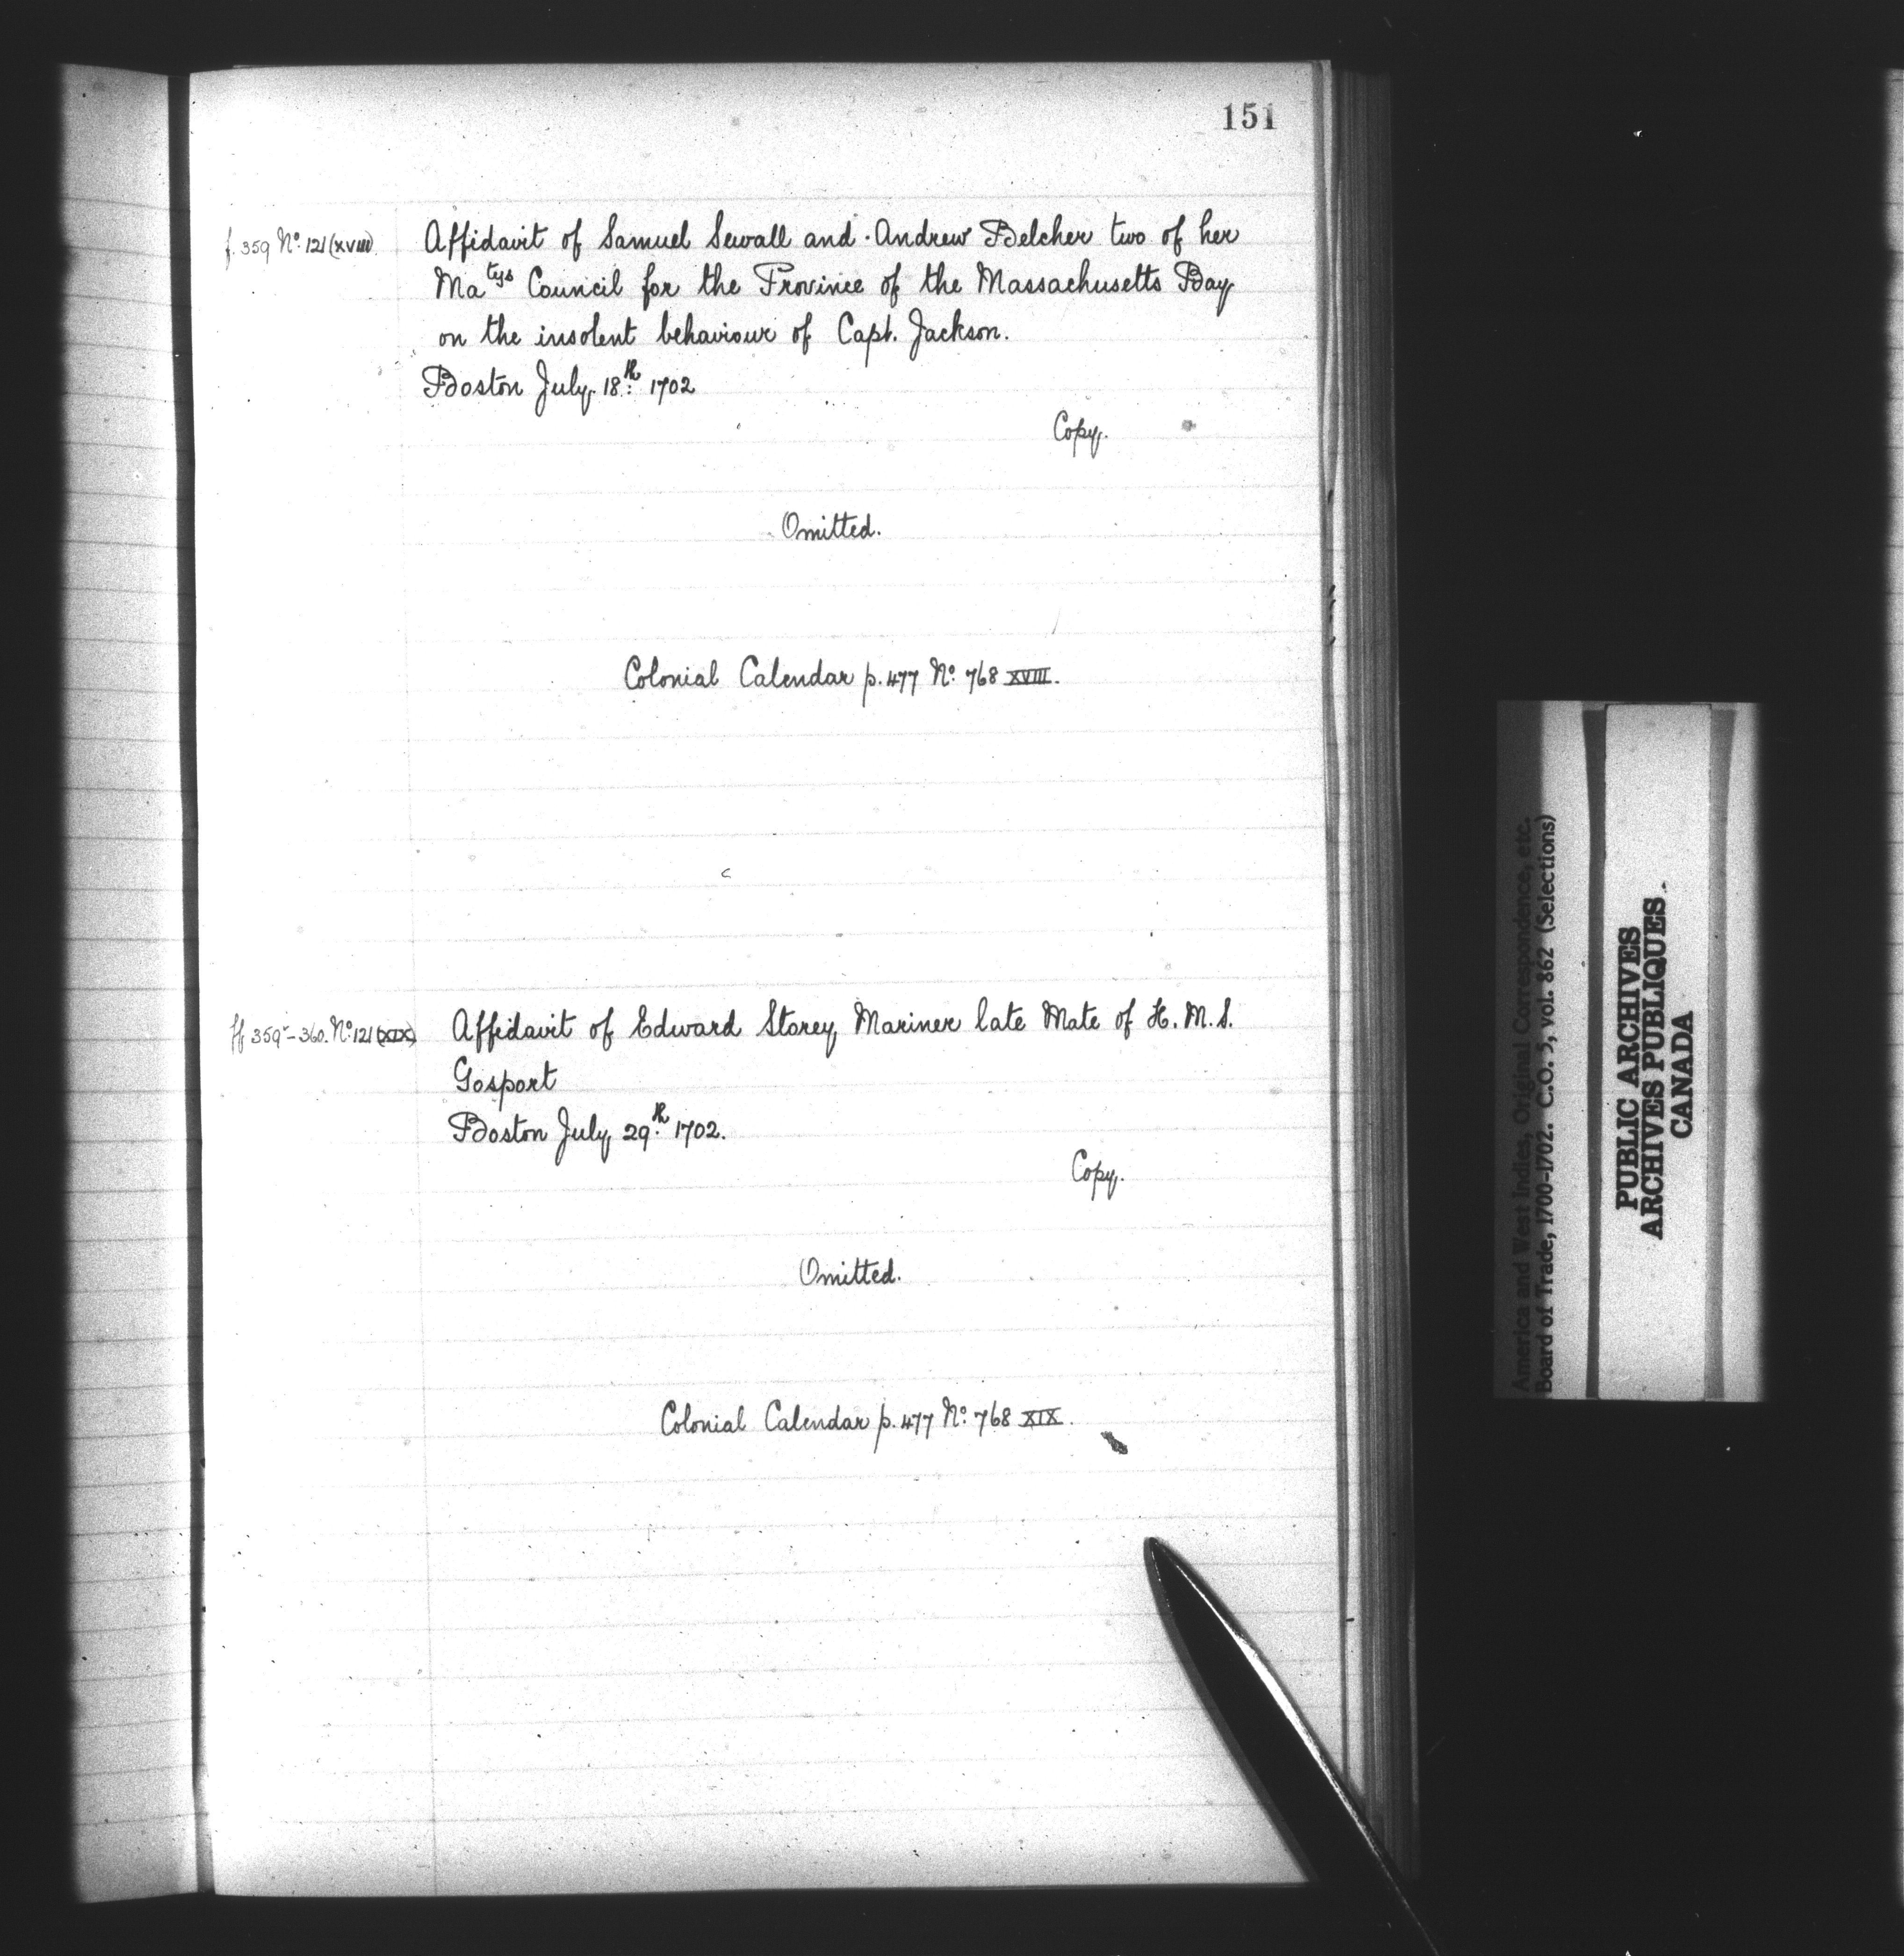 151
f. 359 Nº 121 (XVIII)
Affidavit of Samuel Sewall and Andrew Belcher two of her
Ma^tys Council for the Province of the Massachusetts Bay
on the insolent behaviour of Capt. Jackson.
Boston July 18th 1702
Copy.
Omitted.
Colonial Calendar p. 477 Nº 768 XVIII.
ff 359v–360. Nº 121 (XIX)
Affidavit of Edward Storey Mariner late Mate of H. M. S.
Gosport
Boston July 29th 1702.
Copy.
Omitted.
Colonial Calendar p. 477 Nº 768 XIX.
America and West Indies, Original Correspondence, etc.
Board of Trade, 1700-1702. C.O. 5, vol. 862 (Selections)
PUBLIC ARCHIVES
ARCHIVES PUBLIQUES
CANADA